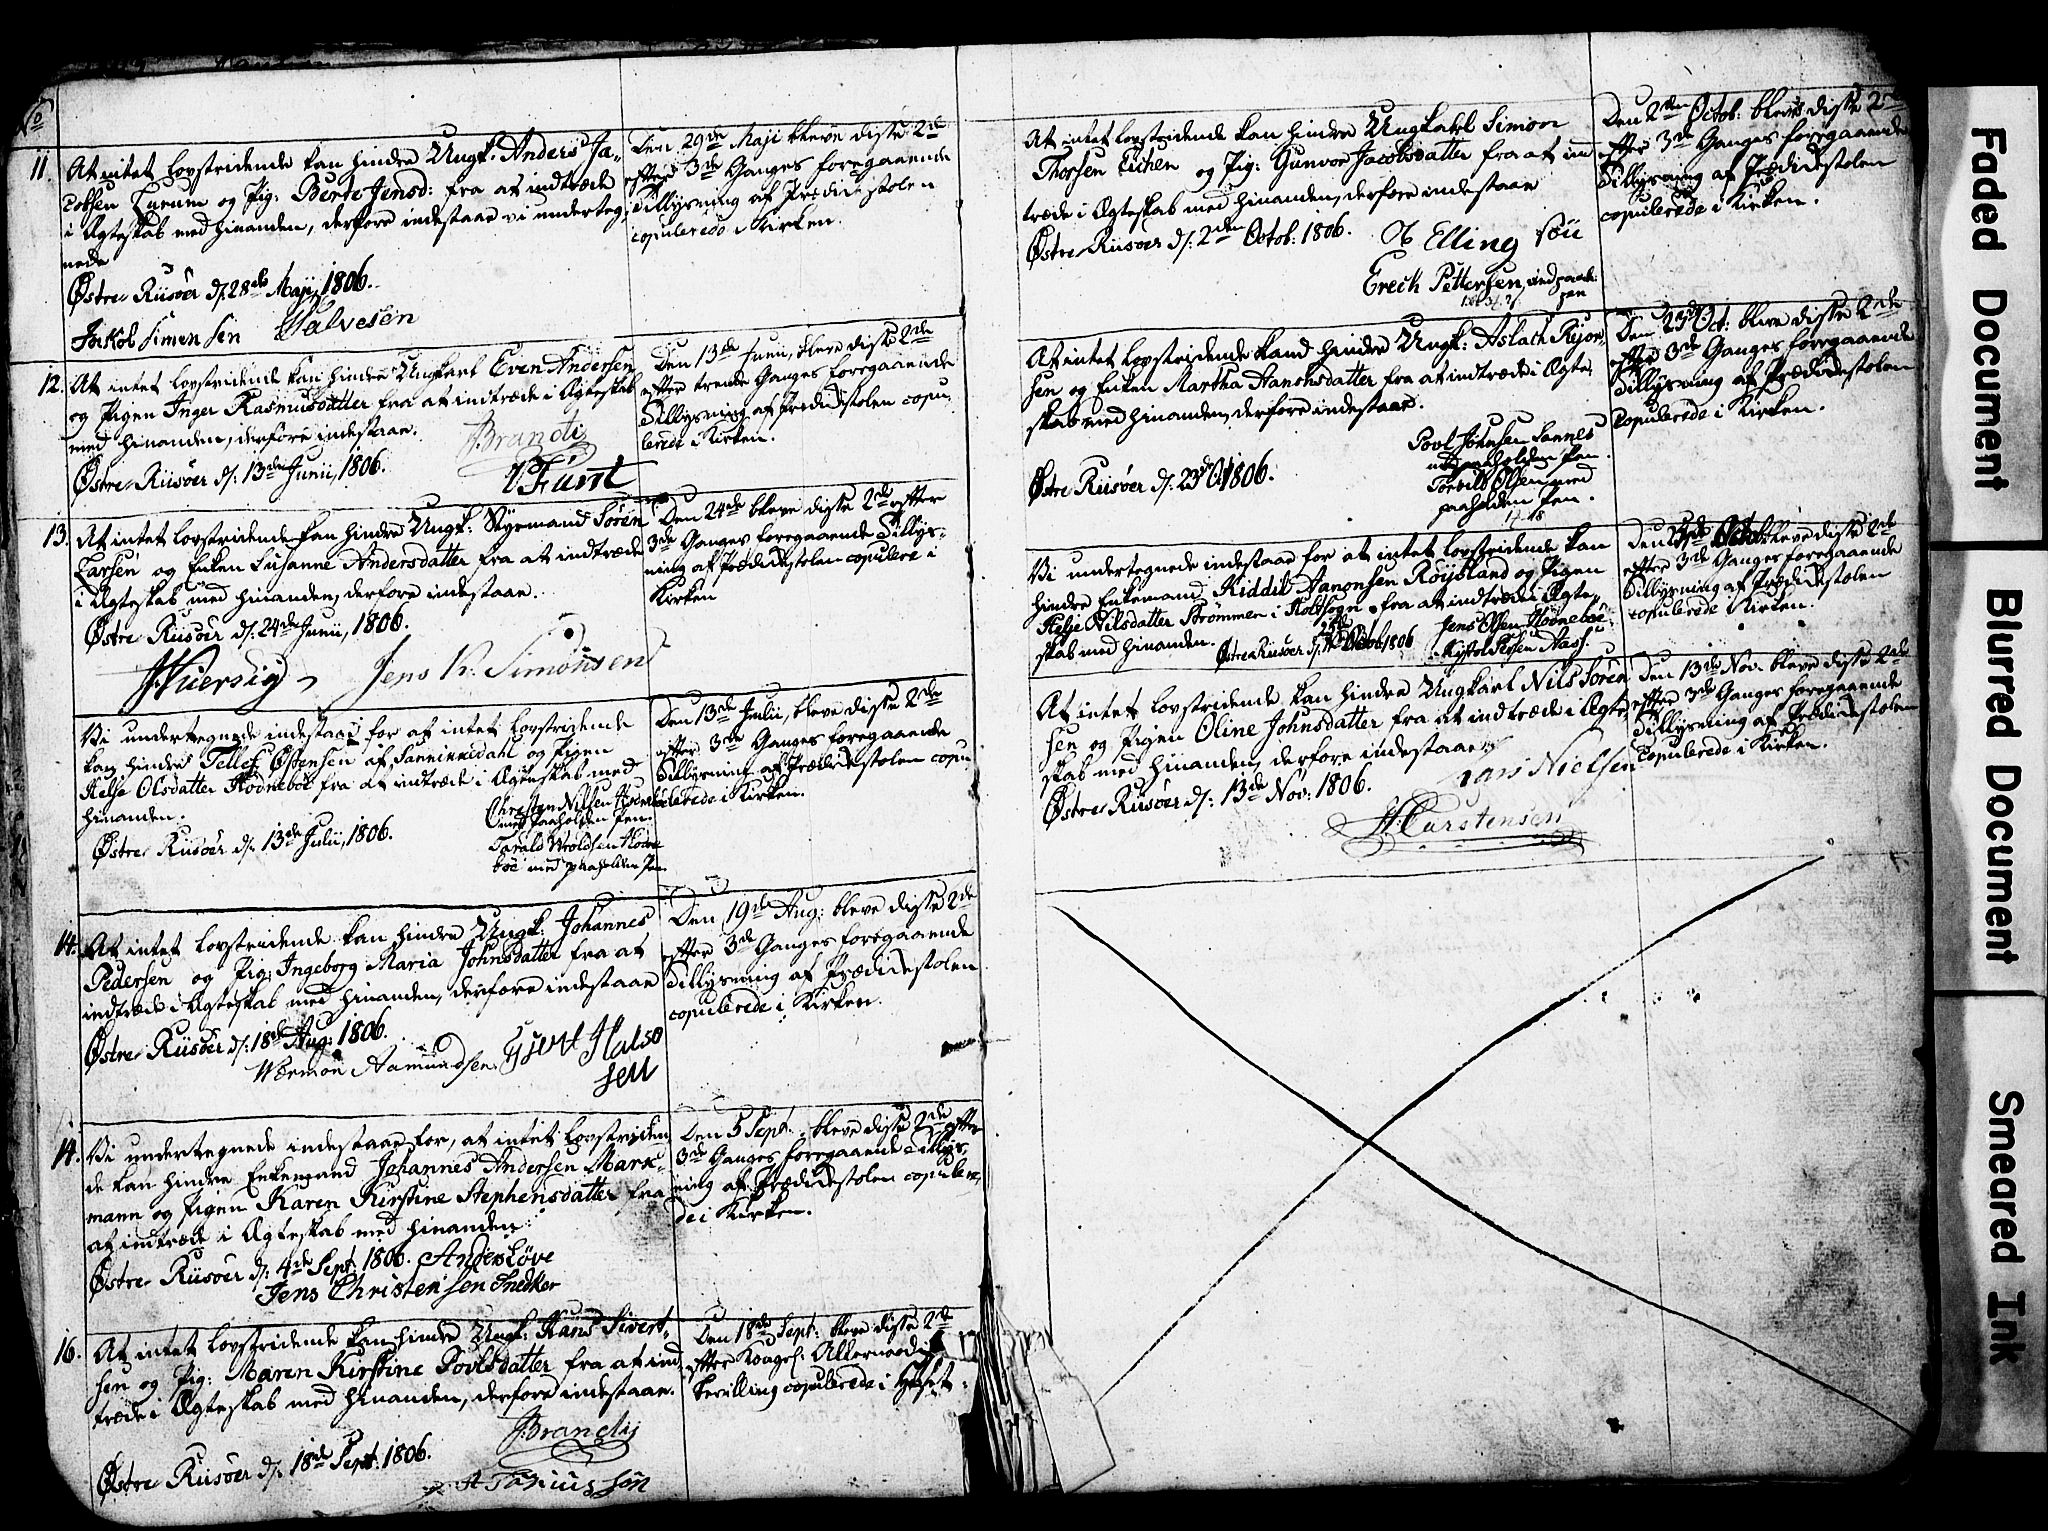 No
11. At intet lovstridende kan hindre Ungk: Anders Ja-
cobsen Lurum og Pig: Berte Jensd: fra at indtræde
i Ægteskab med hinanden, derfore indestaae vi underteg-
nede
Østre Riisöer d. 28de Maji, 1806.
Jakob Simensen Halvesen
Den 29de Maji bleve disse 2de
efter 3de Ganges foregaaende
Tillysning af Prædikestolen
copulerede i Kirken.
12. At intet lovstridende kan hindre Ungkarl Even Andersen
og Pigen Inger Rasmusdatter fra at indtræde i Ægteskab
med hinanden, derfore indestaae.
Østre Riisöer d: 13de Junii, 1806.
Brandij
Funt
Den 13de Junii, bleve disse 2de
efter trende Ganges foregaaende
Tillysning af Prædikestolen copu-
lerede i Kirken.
13. At intet lovstridende kan hindre Ungk: Styrmand Sören
Larsen og Enken Susanne Andersdatter fra at indtræde
i Ægteskab med hinanden, derfore indestaae.
Østre Riisöer d: 24de Junii, 1806.
Jens K. Simonsen
Den 24de bleve disse 2de efter
3de Ganges foregaaende Tillys-
ning af Prædikestolen copulere i
Kirken
Vi undertegnede indestaae for at intet lovstridende
kan hindre Tellef Östensen af Sannikedahl og Pigen
Helje Olsdatter Hödneböe fra at indtræde i Ægteskab med
hinanden.
Østre Riisöer d: 13de Julii, 1806.
Christen Nilsen Hödnebö
med paaholden Pen.
Tarald Wroldsen Hödne
böe med paaholden Pen
Den 13de Julii, bleve disse 2de
efter 3de Ganges foregaaende
Tillysning af Prædikestolen copu-
lerede i Kirken.
14. At intet lovstridende kan hindre Ungk: Johannes
Pedersen og Pig: Ingeborg Maria Johnsdatter fra at
indtræde i Ægteskab med hinanden, derfore indestaae
Østre Riisöer d: 18de Aug: 1806.
Wermon Aamundsen Halvo
sen
Den 19de Aug: bleve disse 2de
efter 3de Ganges foregaaende
Tillysning af Prædikestolen
copulerede i Kirken.
14. Vi undertegnede indestaae for, at intet lovstriden
de kan hindre Enkemand Johannes Andersen Mark-
mann og Pigen Karen Kirstine Stephensdatter fra
at indtræde i Ægteskab med hinanden.
Østre Riisöer d: 4de Sept: 1806. Anders Löve
Jens Christensen Snedker
Den 5 Sept: bleve disse 2de efter
3de Ganges foregaaende Tillys-
ning af Prædikestolen copulere-
de i Kirken.
16. At intet lovstridende kan hindre Ungk: Hans Sivert-
sen og Pig: Maren Kirstine Povelsdatter fra at ind-
træde i Ægteskab med hinanden, derfore indestaae.
Brandij
Østre Riisöer d: 18de Sept: 1806.
Den 18de Sept: bleve disse 2de
efter Kongel: Allernaadigst
bevilling copulerede i Huset.
At intet lovstridende kan hindre Ungkarl Simon
Thorsen Eichen og Pig: Gunvor Jacobsdatter fra at ind
træde i Ægteskab med hinanden, derfore indestaae
Østre Riisöer d: 2den Octob: 1806.
Elling
Erech Pettersen, med paaholden
pen
Den 2den Octob: bleve disse 2de
efter 3de Ganges foregaaende
Tillysning af Prædikestolen
copulerede i Kirken.
At intet lovstridende kand hindre Ungk: Aslach Rejer-
sen og Enken Martha Hanchsdatter fra at indtræde i Ægte-
skab med hinanden, derfore indestaae.
Østre Riisöer d: 23de Oct 1806.
Povl Johnsen Sannes
med paaholden Pen.
Torvild Olsen med
paaholden Pen.
Den 23de Oct: bleve disse 2de
efter 3de Ganges foregaaende
Tillysning af Prædikestolen
Copulerede i Kirken.
Vi undertegnede indestaae for at intet lovstridende kan
hindre Enkemand Kiddil Aanonsen Röysland og Pigen
Helje Nilsdatter Strömmen i Holt Sogn fra at indtræde i Ægte-
skab med hinanden. Østre Riisöer d: Octob. 1806
Jens Olsen Hödneböe
Den Octob: bleve disse 2de
efter 3de Ganges foregaaende
Tillysning af Prædikestolen
copulerede i Kirken.
At intet lovstridende kan hindre Ungkarl Nils Sören
sen og Pigen Oline Johnsdatter fra at indtræde i Ægte-
skab med hinanden, derfore indestaae
Østre Riisöer d: 13de Nov: 1806.
Nielsen
Carstensen
Den 13de Nov. bleve disse 2de
efter 3de Ganges foregaaende
Tillysning af Prædikestolen
Copulerede i Kirken.
Faded Document
Blurred Document
Smeared Ink